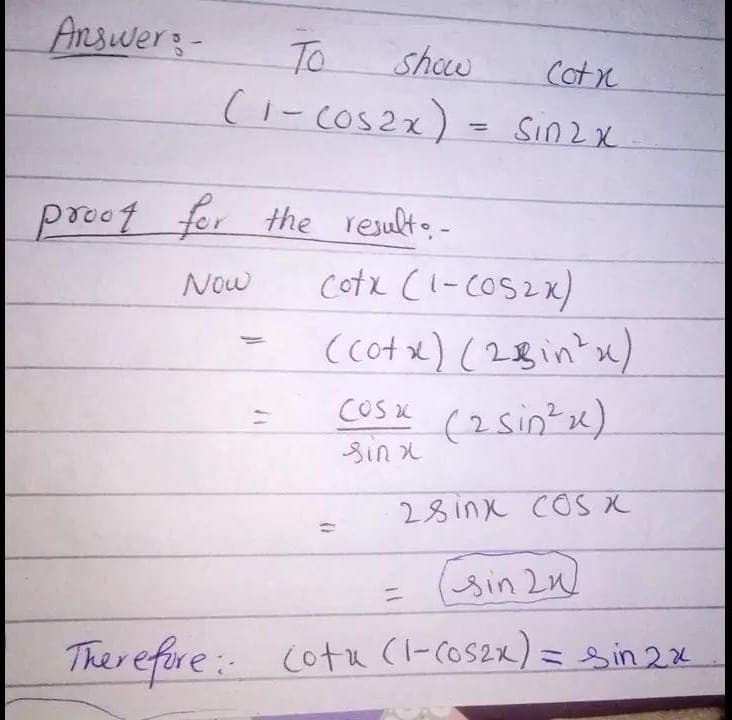 Answer:-
To show cotx
(1-cos2x) = sin2x
proof for the result:-
Now cotx (1-cos2x)
= (cotx) (2sin²x)
= cosx/sinx (2sin²x)
= 2sinx cosx
= sin2x
Therefore:- cotx (1-cos2x) = sin2x